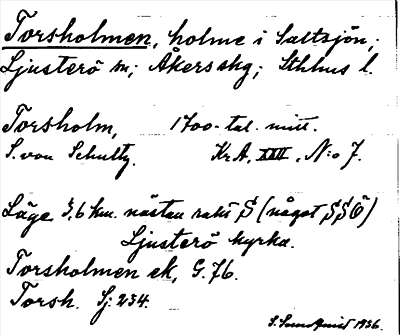 Torsholmen, holme i Saltsjön,
Ljusterö sn; Åkers skg; Sthlms l.
Torsholm, 1700-tal. mitt.
S. von Schultz. Kr.A, XXII, N:o 7.
Läge 3,6 km. nästan rakt S (något SSÖ)
Ljusterö kyrka.
Torsholmen ek, G. 76.
Torsh. Sj: 234.
S. Sundqvist 1936.